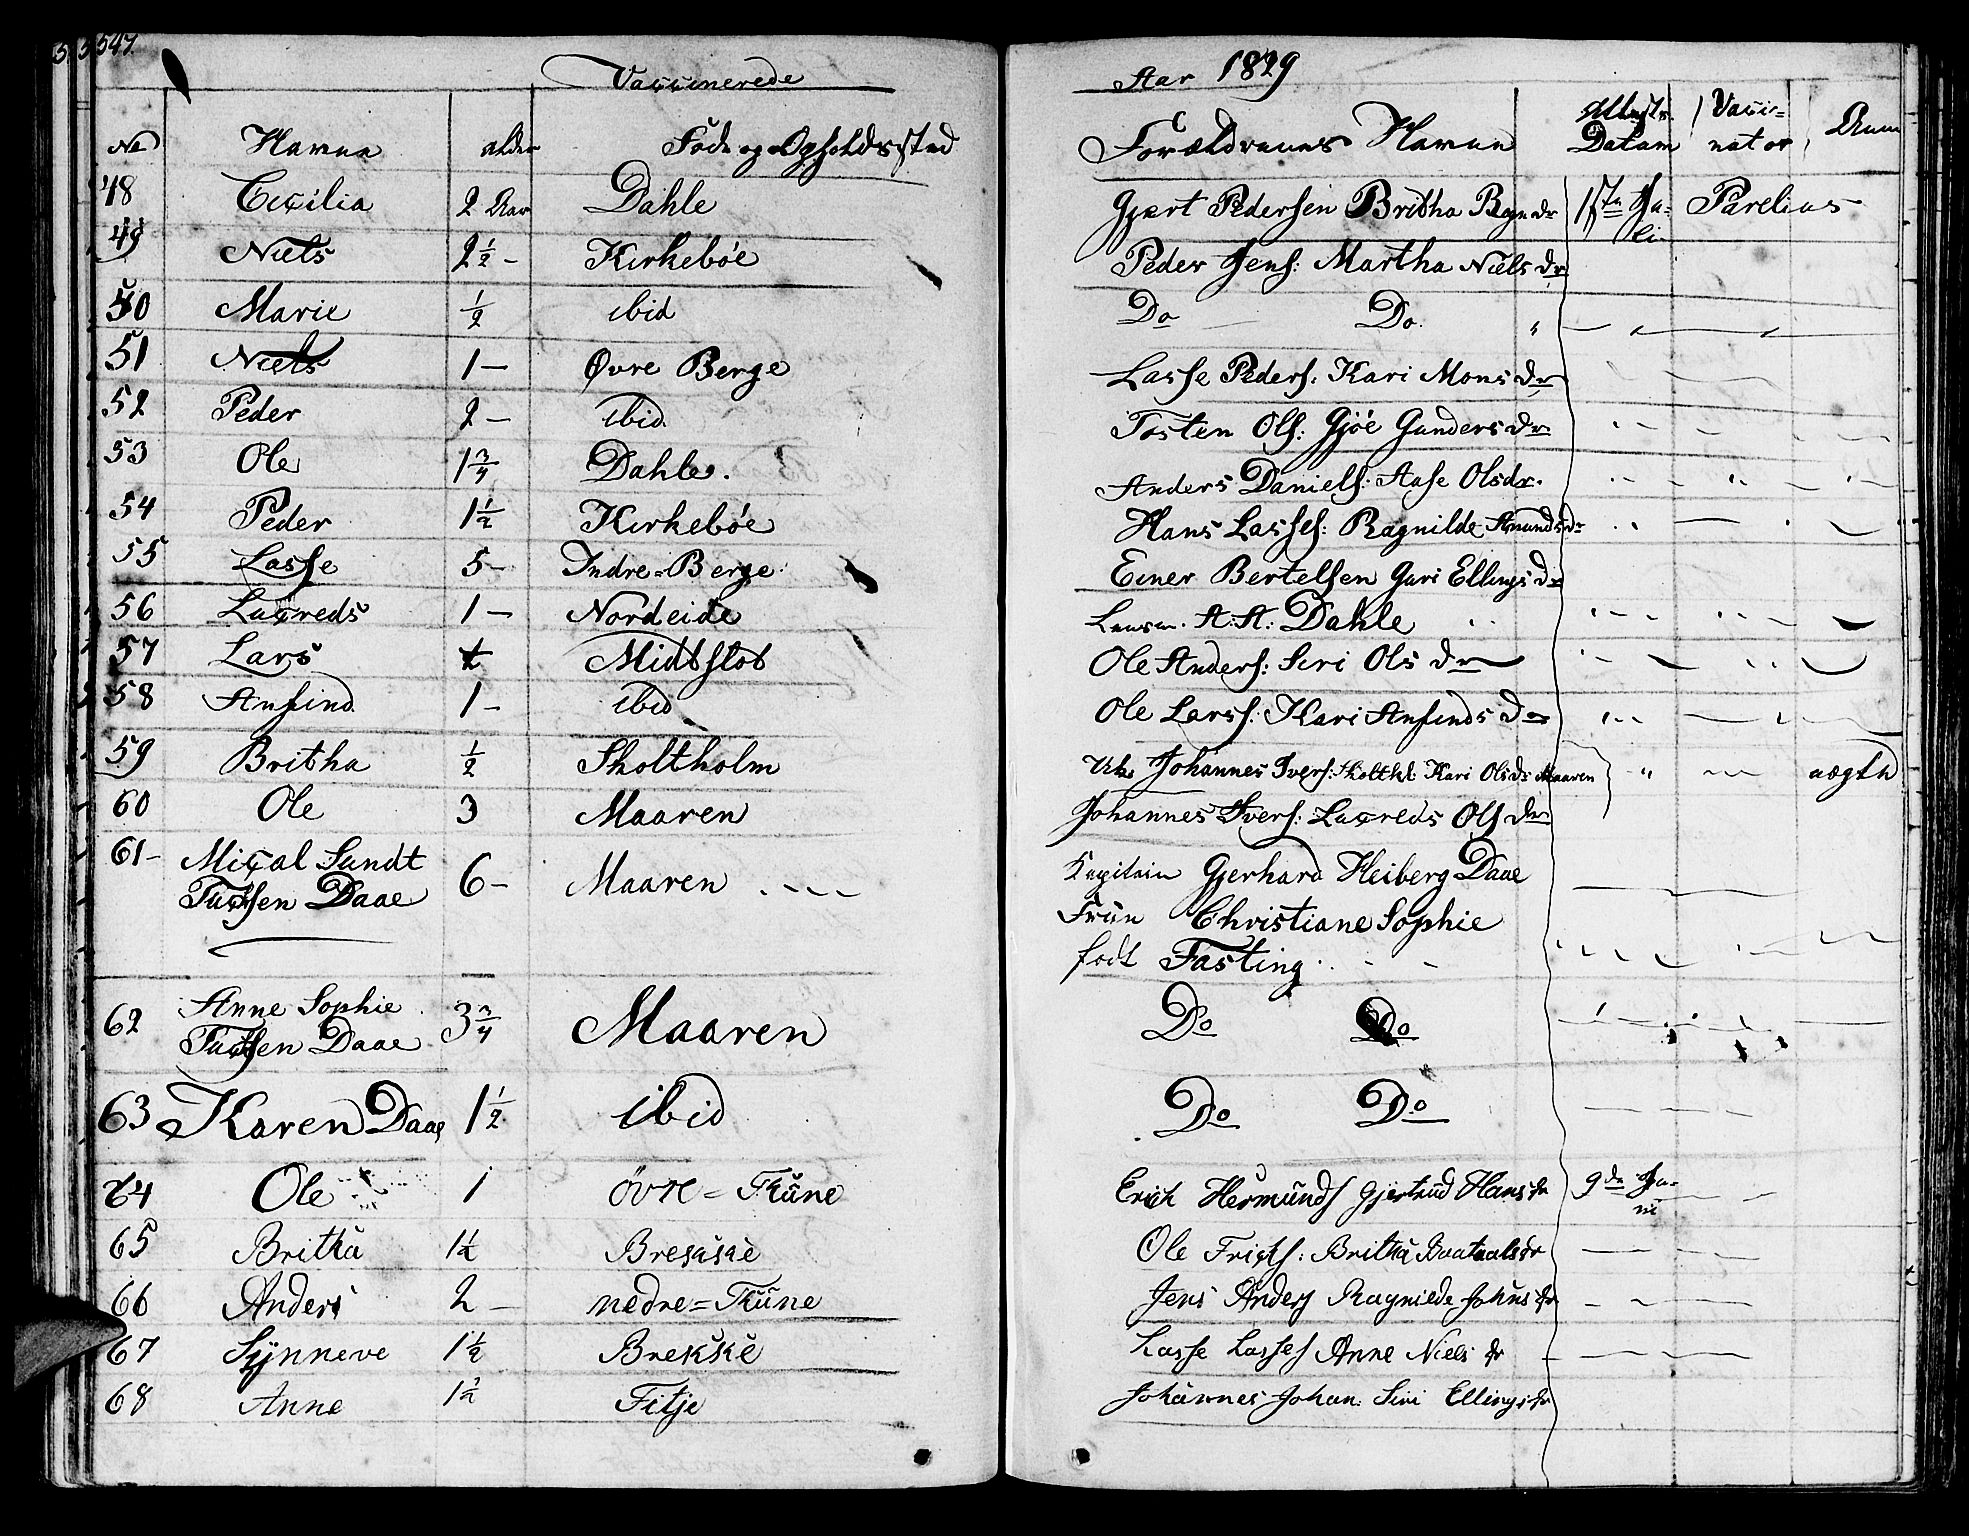 547.
Vaccinerede
Aar 1829
No Navne alder Føde og Opholdssted Forældrenes Navne Attests Datum Vacci= nator Anm
48 Cicilia 2 Aar Dahle Gjert Pedersen Britha Bryn dr 17de Ju= li Parelius
49 Niels 2½ - Kirkebøe Peder Jens: Martha Niels dr
50 Marie ½ ibid Do Do.
51 Niels 1 - Øvre Berge Lasse Peders: Kari Mons dr
52 Peder 2 - ibid. Tosten Ols: Gjøe Gunders dr
53 Ole 1¾ Dahle. Anders Daniels: Aase Olsdr.
54 Peder 1½ Kirkebøe Hans Lasses: Ragnilde Amunds dr
55 Lasse 5 - Indre=Berge Einer Bertelsen Guri Ellings dr
56 Lacreds 1 - Nordeide Lensm. A: A: Dahle
57 Lars Midtslot Ole Anders: Siri Ols dr
58 Anfind 1 - ibid Ole Larss: Kari Anfinds dr
59 Britha ½ Skoltholm Johannes Ivers: Kari Olsdr Maaren uægth
60 Ole 3 Maaren Johannes Ivers: Lacreds Ols dr
61 - Miçal Sundt 6 - Maaren Kapitain Gjerhard Heiberg Daae
Tuchsen Daae Früe Christiane Sophie
født Fasting
62 Anne Sophie 3¾ Maaren Do Do
Tuchsen Daae
63 Karen Daae 1½ ibid Do Do
64 Ole 1 övre = Tkŭne Erich Hermŭnds Gjertrŭd Hans dr 9de Ju= ni
65 Brithă 1½ Breskske Ole Fricts: Brithă Baatals dr
66 Anders 2 - nedre = Tkŭne Jens Anders Ragnilde Johns dr
67 Synneve 1½ Brekske Lasse Lasses Anne Niels dr
68 Anne 1½ Fitje Johannes Johan: Siri Ellings dr